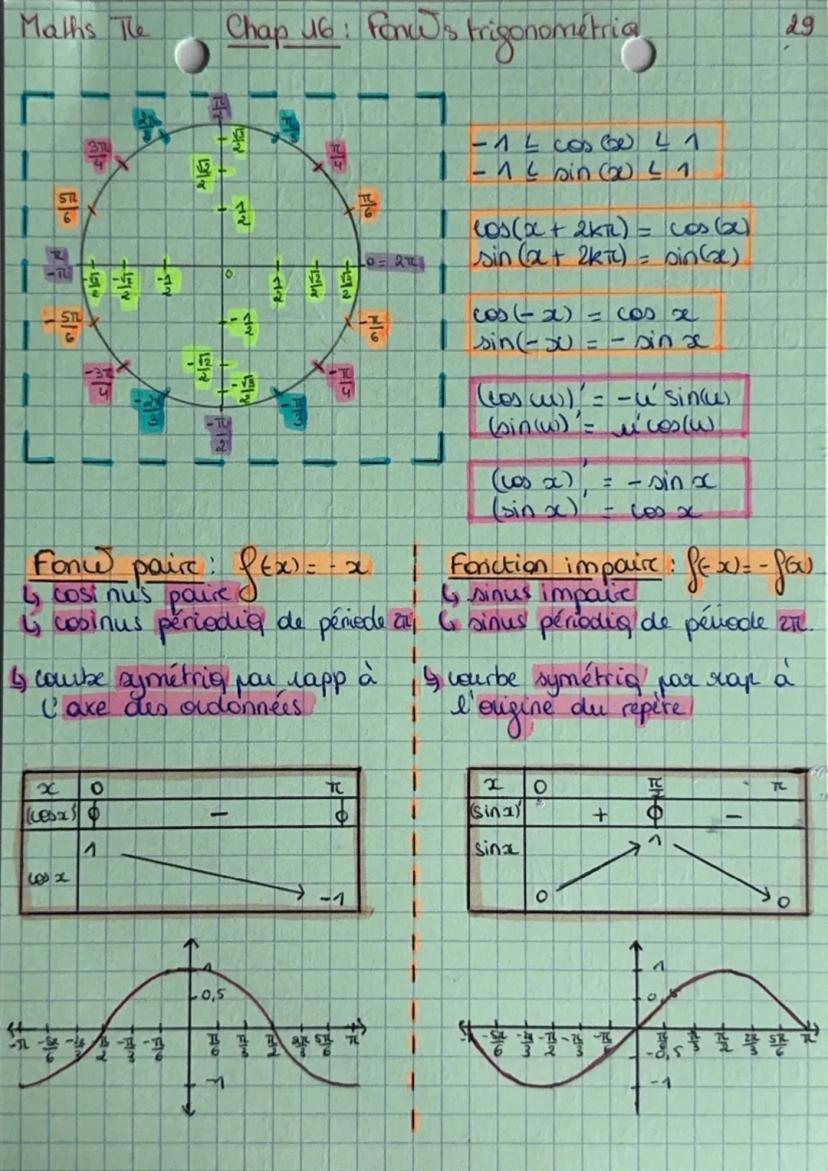 Maths Tle Chap 16 : Foncto s trigonométriq 29
π/2
2π/3 π/3
3π/4 π/4
5π/6 π/6
√3/2
√2/2
1/2
π
-π
0 = 2π
-√3/2 -√2/2 -1/2 0 1/2 √2/2 √3/2
-1/2
-√2/2
-√3/2
-5π/6 -π/6
-3π/4 -π/4
-2π/3 -π/3
-π/2
-1 ≤ cos(x) ≤ 1
-1 ≤ sin(x) ≤ 1
cos(x + 2kπ) = cos(x)
sin(x + 2kπ) = sin(x)
cos(-x) = cos x
sin(-x) = - sin x
(cos(u))' = -u' sin(u)
(sin(u))' = u' cos(u)
(cos x)' = - sin x
(sin x)' = cos x
paire : f(-x) = - x
↳ cosinus paire
↳ cosinus périodiq de période 2π
↳ courbe symétriq par rapp à
l'axe des ordonnées
Fonction impaire : f(-x) = -f(x)
↳ sinus impaire
↳ sinus périodiq de période 2π.
↳ courbe symétriq par rap à
l'origine du repère
x 0 π
(cos x)' 0 - 0
cos x 1 -1
x 0 π/2 π
(sin x)' + 0 -
sin x 0 1 0
1
0,5
-π -5π/6 -π/2 -π/3 -π/6 π/6 π/3 π/2 2π/3 5π/6 π
-1
1
0,5
-π -5π/6 -π/2 -π/3 -π/6 π/6 π/3 π/2 2π/3 5π/6 π
-0,5
-1